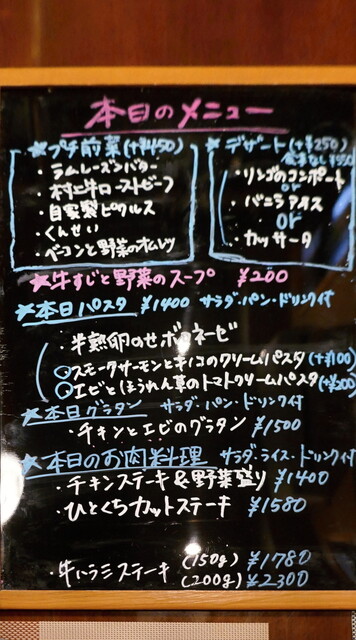 本日のメニュー
★プチ前菜(+¥450)
・ラムレーズンバター
・村上牛ローストビーフ
・自家製ピクルス
・くんせい
・ベーコンと野菜のオムレツ
★デザート(+¥250)
・リンゴのコンポート
or
・バニラアイス
or
・カッサータ
★牛すじと野菜のスープ ¥200
★本日パスタ ¥1400 サラダ・パン・ドリンク付
・半熟卵のせボロネーゼ
○スモークサーモンとキノコのクリームパスタ(+¥100)
○エビとほうれん草のトマトクリームパスタ(+¥200)
★本日グラタン サラダ・パン・ドリンク付
・チキンとエビのグラタン ¥1500
★本日のお肉料理 サラダ・ライス・ドリンク付
・チキンステーキ&野菜盛り ¥1400
・ひとくちカットステーキ ¥1580
・牛ハラミステーキ (150g) ¥1780
(200g) ¥2300